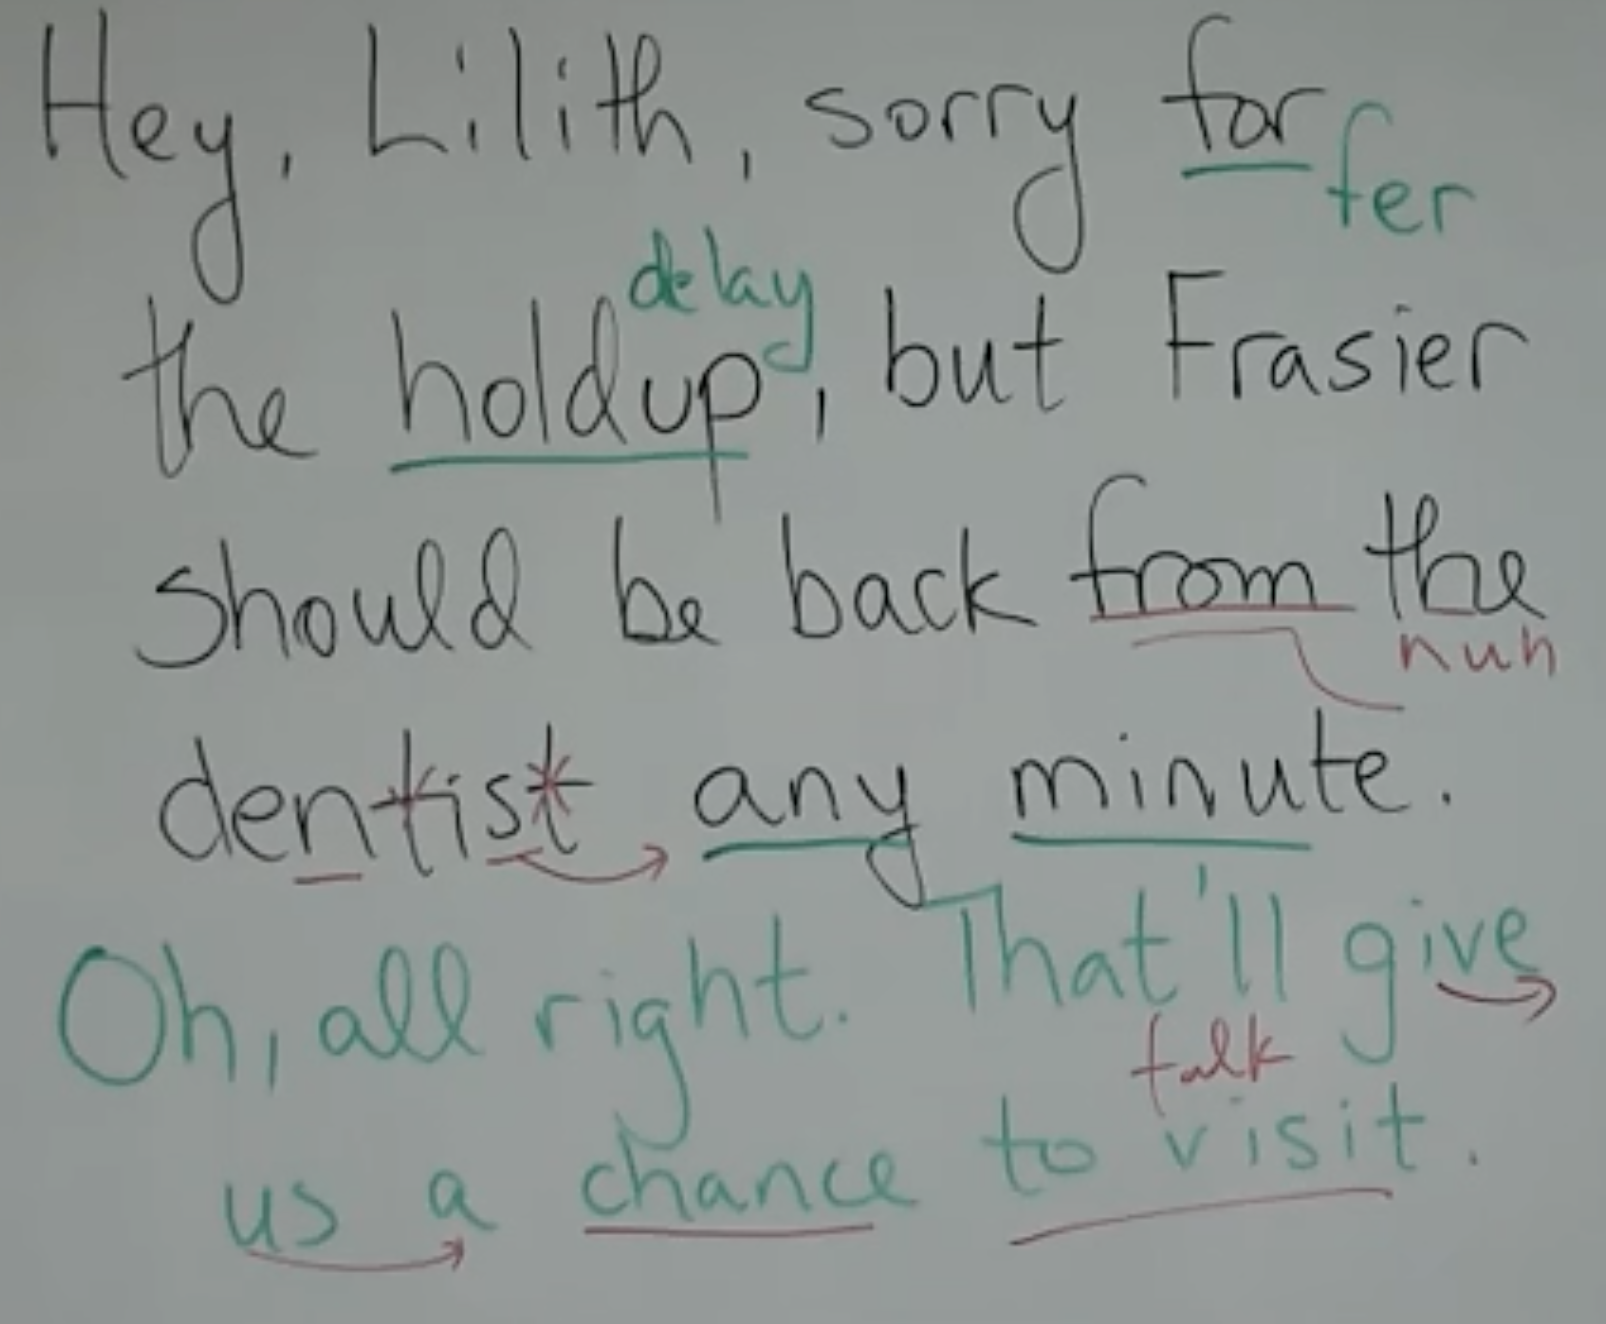 Hey, Lilith, sorry for
fer
delay
the holdup, but Frasier
should be back from the
nuh
dentist any minute.
Oh, all right. That'll give
talk
us a chance to visit.